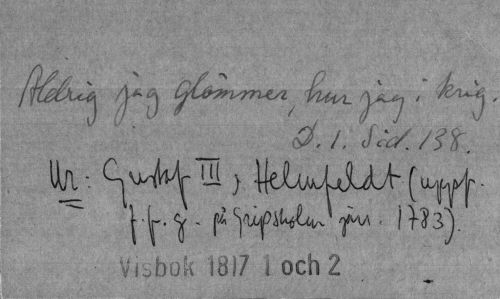 Aldrig jag glömmer, hur jag i krig.
D. 1. Sid. 138.
Ur: Gustaf III, Helmfeldt (uppf.
f.f.g. på Gripsholm jan. 1783).
Visbok 1817 1 och 2